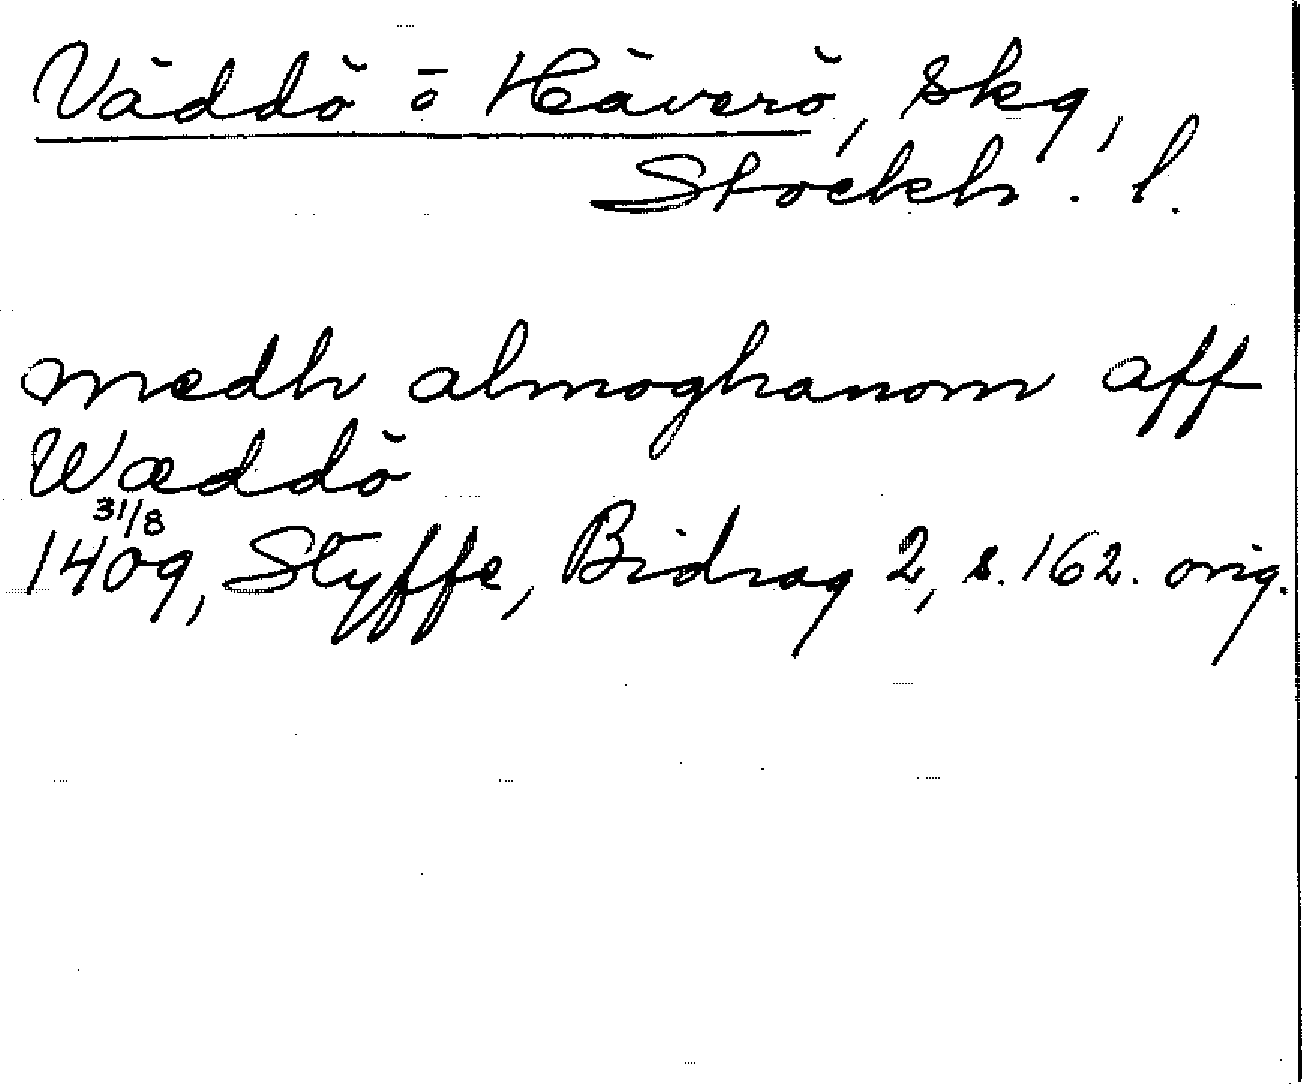 Väddö o Häverö, skg,
Stockh. l.
medh almoghanom aff
Wæddö
31/8
1409, Styffe, Bidrag 2, s. 162. orig.